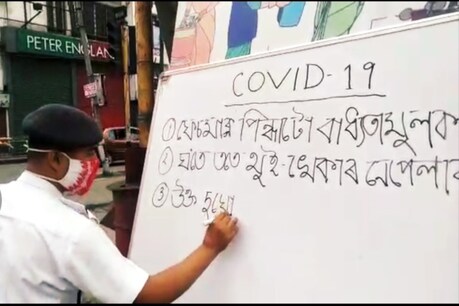 PETER ENGLAND
COVID-19
① ফেচমাস্ক পিন্ধাটো বাধ্যতামুলক
② যতে ততে থুই-খেকাৰ নেপেলাব
③ উক্ত